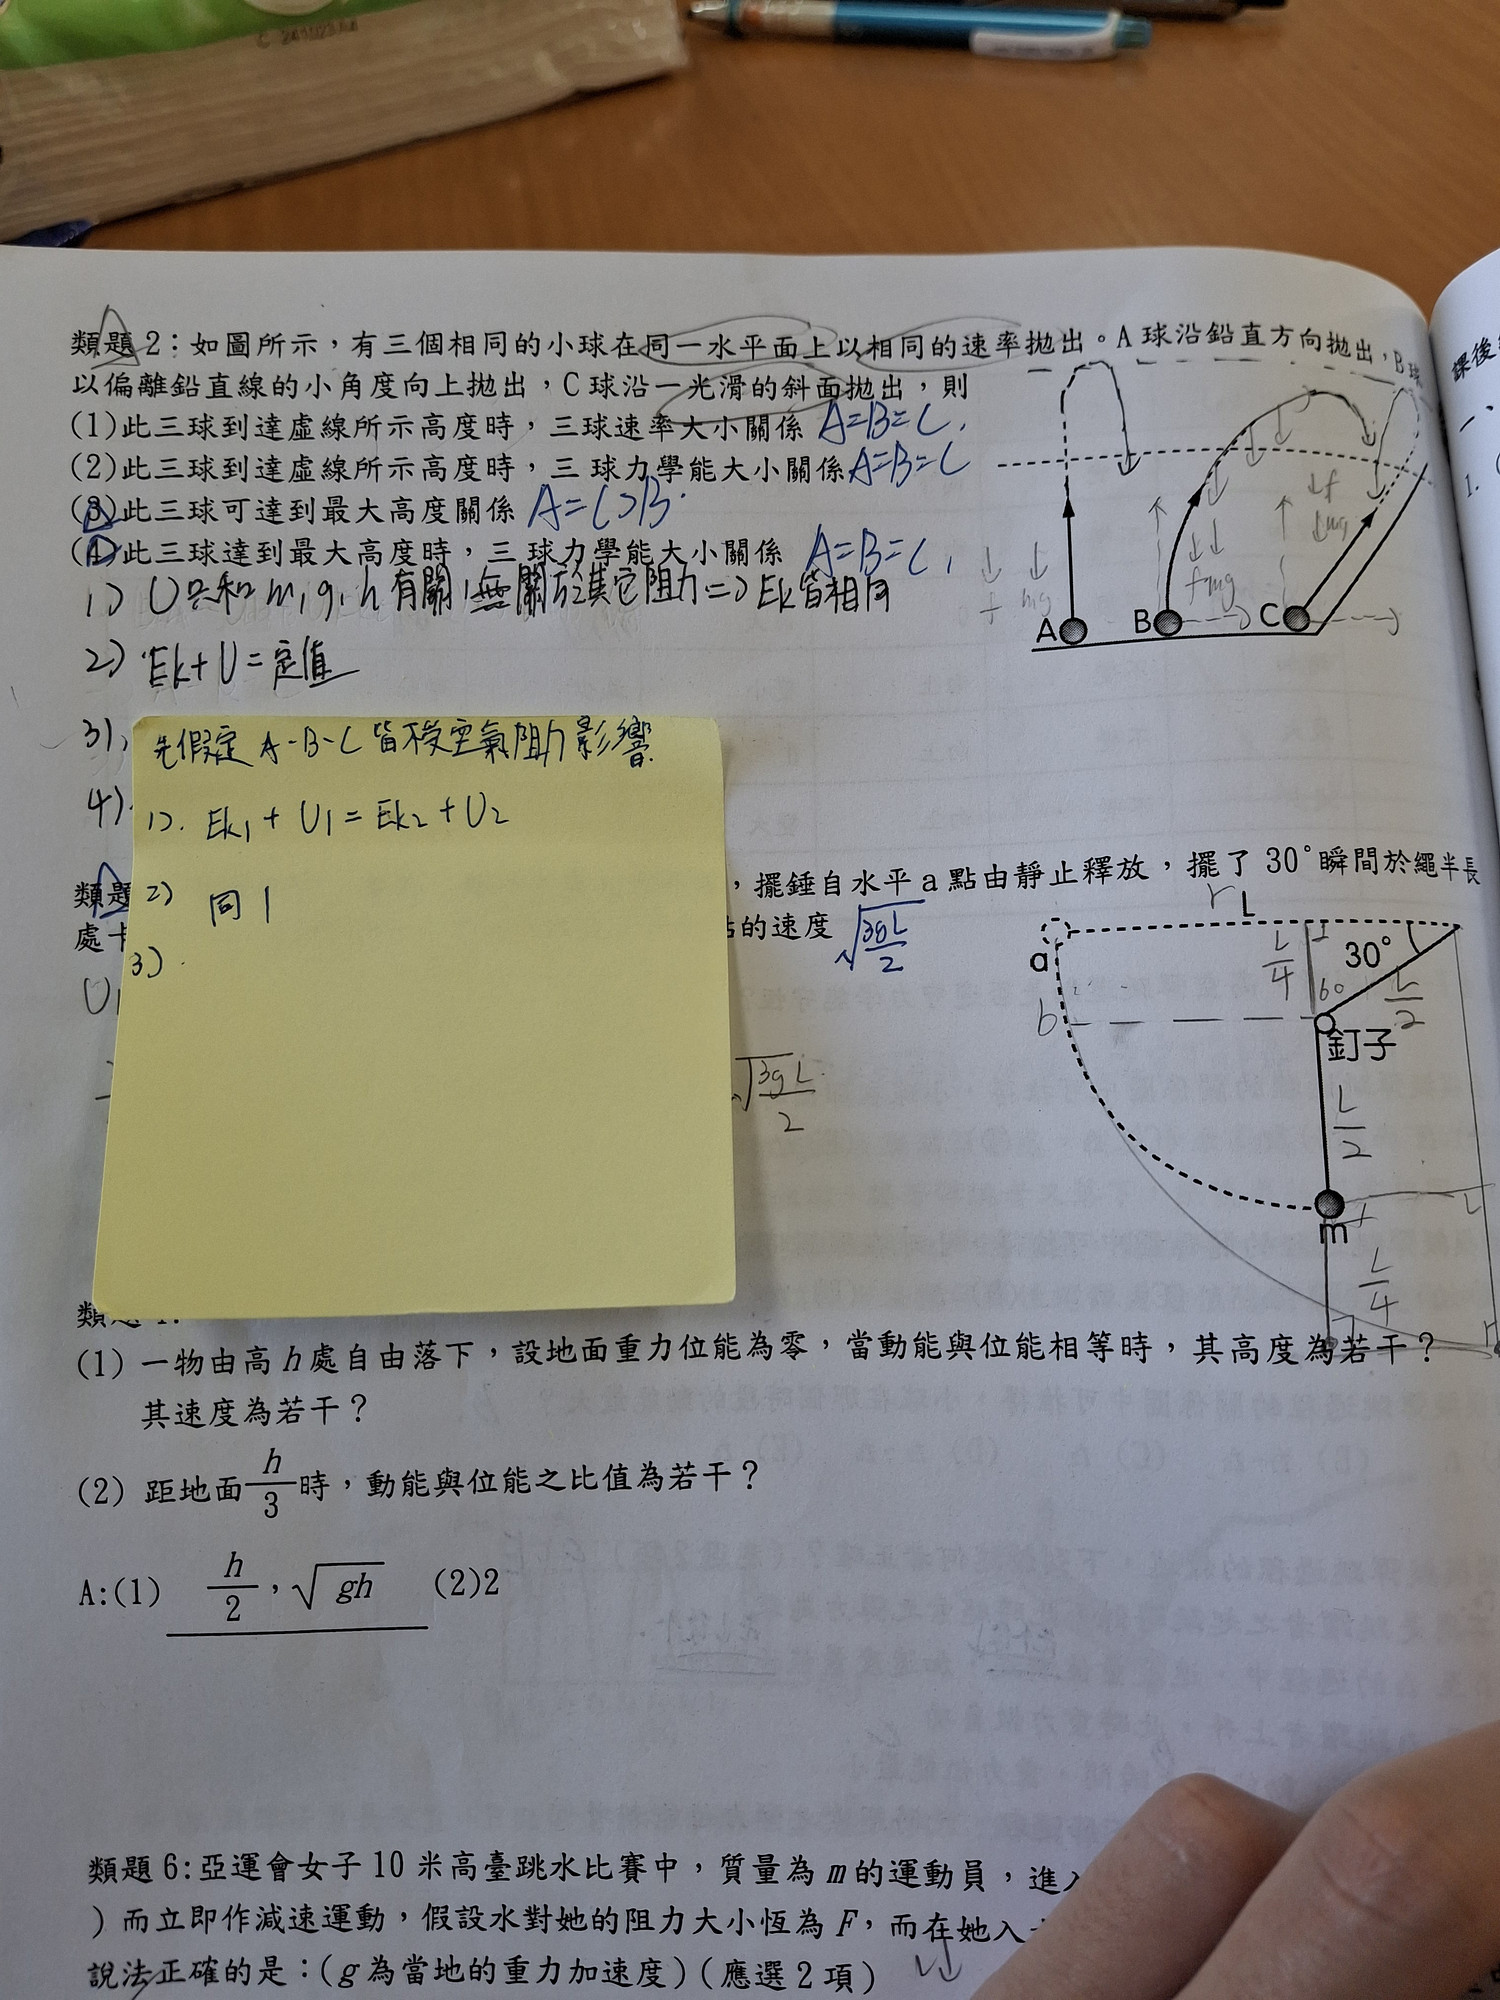 類題2：如圖所示，有三個相同的小球在同一水平面上以相同的速率拋出。A球沿鉛直方向拋出，B球
以偏離鉛直線的小角度向上拋出，C球沿一光滑的斜面拋出，則
(1)此三球到達虛線所示高度時，三球速率大小關係 A=B=C.
(2)此三球到達虛線所示高度時，三球力學能大小關係 A=B=C
(3)此三球可達到最大高度關係 A=C>B.
(4)此三球達到最大高度時，三球力學能大小關係 A=B=C,
1) U只和m,g,h有關,無關於其它阻力=>Ek皆相同
2) Ek+U=定值
3),
4)
f mg
f mg
f
mg
A B C
先假定A-B-C皆不受空氣阻力影響
1). Ek1+U1=Ek2+U2
2) 同1
3).
類題
，擺錘自水平a點由靜止釋放，擺了30°瞬間於繩半長
處
的速度 √3gL/2
U1
√3gL/2
L
a
b
30°
60
L/4
L/2
釘子
L/2
m
L/4
類題
(1) 一物由高h處自由落下，設地面重力位能為零，當動能與位能相等時，其高度為若干？
其速度為若干？
(2) 距地面h/3時，動能與位能之比值為若干？
A:(1) h/2，√gh (2)2
類題6:亞運會女子10米高臺跳水比賽中，質量為m的運動員，進入
)而立即作減速運動，假設水對她的阻力大小恆為F，而在她入
說法正確的是：(g為當地的重力加速度)(應選2項)
課後
一、
1.